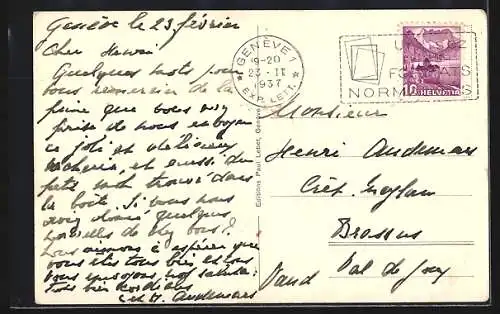 Genève le 23 février
Cher Henri
Quelques mots pour
vous remercier de la
peine que vous avez
prise de nous envoyer
ce joli et délicieux
vacherin, et aussi du
petit mot trouvé dans
la boîte. Si vous nous
aviez donné quelques
nouvelles de chez vous?
Nous aimons à espérer que
vous êtes tous bien et tous
vous envoyons nos saluts
très bien cordiaux
Audemars
Editions Paul Lebet, Genève
GENÈVE 1
19-20
23·II
1937
EXP. LETT.
UTILISEZ
FORMATS
NORMALISÉS
10 HELVETIA
Monsieur
Henri Audemars
Crêt-Meylan
Brassus
Val de Joux
Vaud